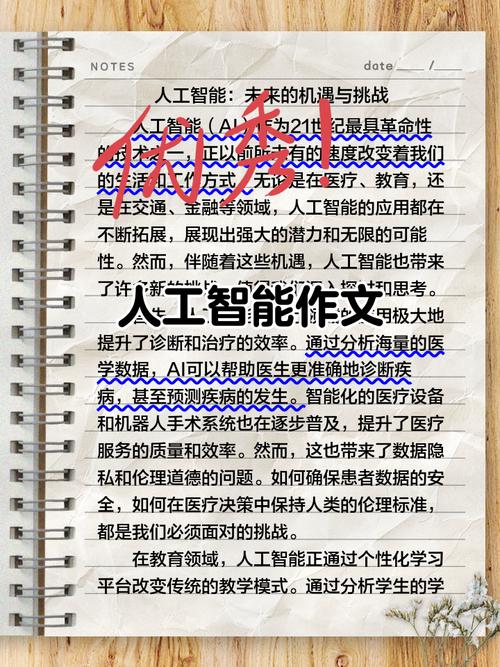 NOTES
date ____ / ____
人工智能：未来的机遇与挑战
人工智能（AI）作为21世纪最具革命性
的技术之一，正以前所未有的速度改变着我们
的生活和工作方式。无论是在医疗、教育，还
是在交通、金融等领域，人工智能的应用都在
不断拓展，展现出强大的潜力和无限的可能
性。然而，伴随着这些机遇，人工智能也带来
了许多新的挑战，思考。
优秀！
人工智能作文
用极大地
提升了诊断和治疗的效率。通过分析海量的医
学数据，AI可以帮助医生更准确地诊断疾
病，甚至预测疾病的发生。智能化的医疗设备
和机器人手术系统也在逐步普及，提升了医疗
服务的质量和效率。然而，这也带来了数据隐
私和伦理道德的问题。如何确保患者数据的安
全，如何在医疗决策中保持人类的伦理标准，
都是我们必须面对的挑战。
在教育领域，人工智能正通过个性化学习
平台改变传统的教学模式。通过分析学生的学